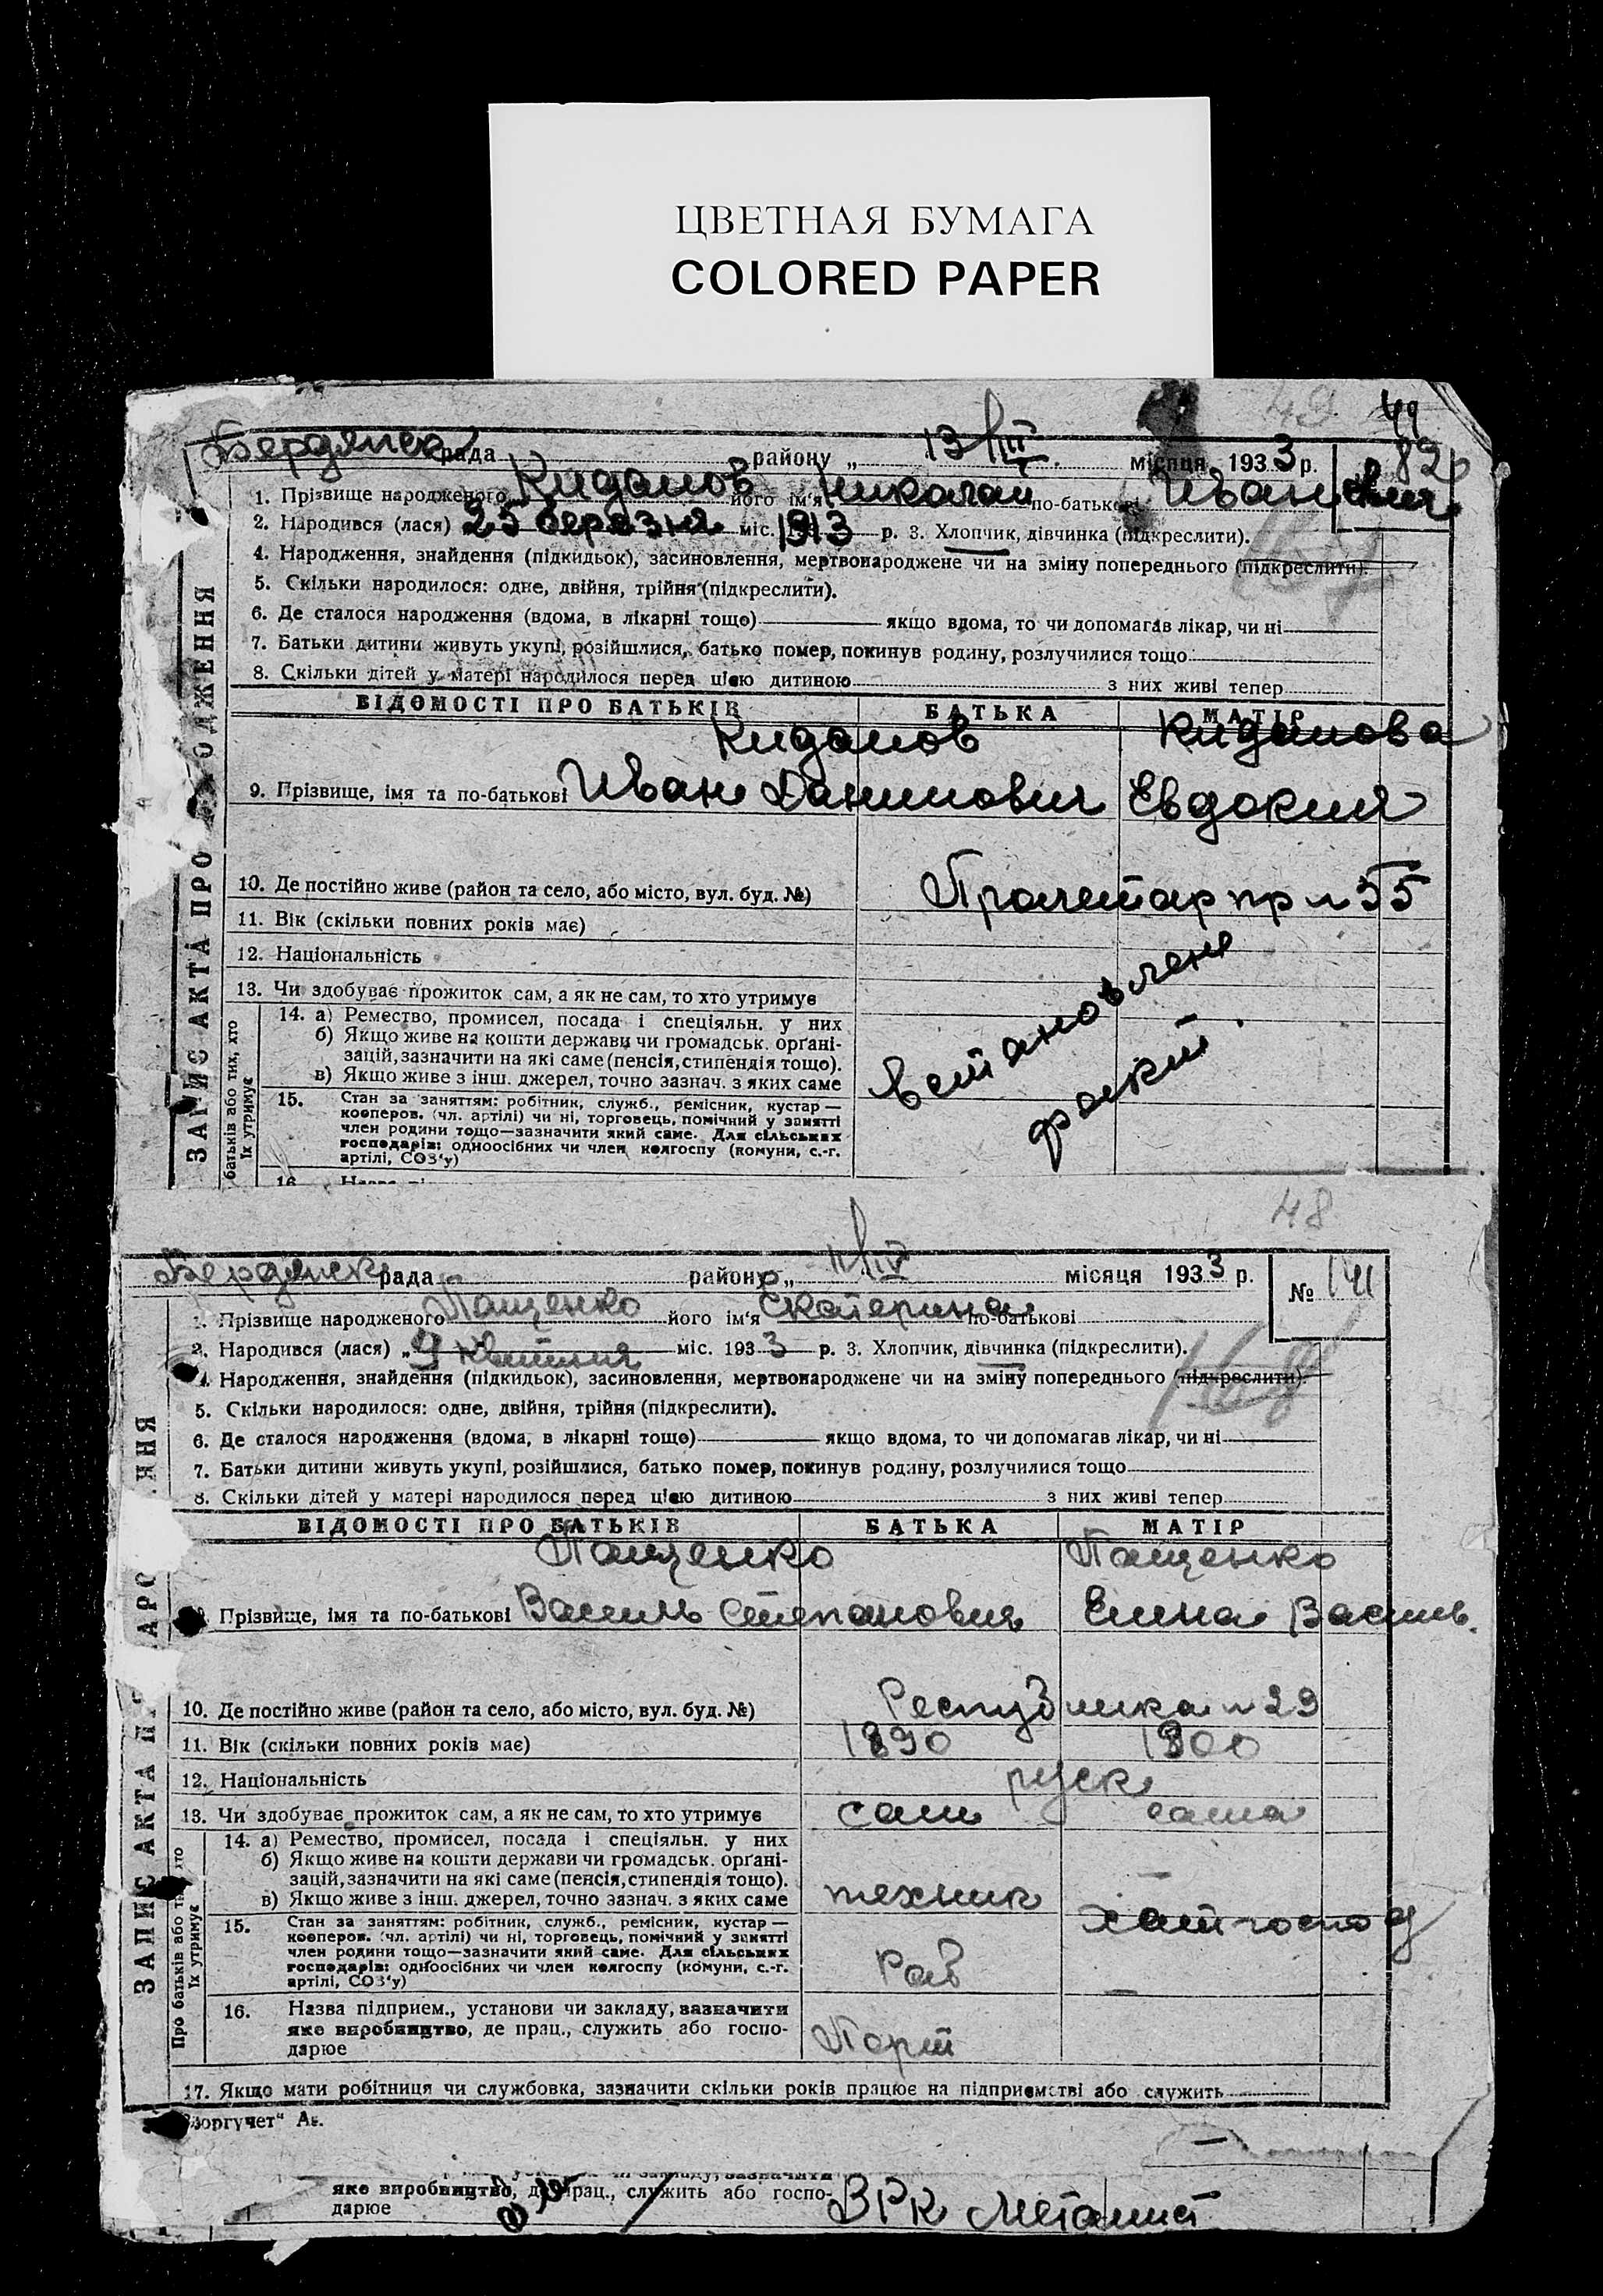 ЦВЕТНАЯ БУМАГА
COLORED PAPER
49
Бердянск рада района „ 13/III місяця 1933 р. 82
1. Прізвище народженого Киданов його ім'я Николай по-батькові Иванович
2. Народився (лася) 25 березня міс. 1913 р. 3. Хлопчик, дівчинка (підкреслити).
4. Народження, знайдення (підкидьок), засиновлення, мертвонароджене чи на зміну попереднього (підкреслити).
5. Скільки народилося: одне, двійня, трійня (підкреслити).
6. Де сталося народження (вдома, в лікарні тощо) якщо вдома, то чи допомагав лікар, чи ні
7. Батьки дитини живуть укупі, розійшлися, батько помер, покинув родину, розлучилися тощо
8. Скільки дітей у матері народилося перед цією дитиною з них живі тепер
ВІДОМОСТІ ПРО БАТЬКІВ БАТЬКА МАТІР
Киданов Киданова
9. Прізвище, імя та по-батькові Иван Данилович Евдокия
10. Де постійно живе (район та село, або місто, вул. буд. №) Пролетар пр № 55
11. Вік (скільки повних років має)
12. Національність
13. Чи здобуває прожиток сам, а як не сам, то хто утримує
14. а) Ремество, промисел, посада і спеціяльн. у них
б) Якщо живе на кошти держави чи громадськ. орґані-
зацій, зазначити на які саме (пенсія, стипендія тощо).
в) Якщо живе з інш. джерел, точно зазнач. з яких саме
встановлене
факт.
15. Стан за заняттям: робітник, служб., ремісник, кустар —
кооперов. (чл. артілі) чи ні, торговець, помічний у занятті
член родини тощо—зазначити який саме. Для сільських
господарів: одноосібних чи член колгоспу (комуни, с.-г.
артілі, СОЗ'у)
16.
ЗАПИС АКТА ПРО ОДЖЕННЯ
батьків або тих, хто
їх утримує
48
Бердянск рада району „ 11/IV місяця 1933 р. № 141
1. Прізвище народженого Пащенко його ім'я Екатерина по-батькові
2. Народився (лася) „9 квітня міс. 1933 р. 3. Хлопчик, дівчинка (підкреслити).
168
4. Народження, знайдення (підкидьок), засиновлення, мертвонароджене чи на зміну попереднього (підкреслити).
5. Скільки народилося: одне, двійня, трійня (підкреслити).
6. Де сталося народження (вдома, в лікарні тощо) якщо вдома, то чи допомагав лікар, чи ні
7. Батьки дитини живуть укупі, розійшлися, батько помер, покинув родину, розлучилися тощо
8. Скільки дітей у матері народилося перед цією дитиною з них живі тепер
ВІДОМОСТІ ПРО БАТЬКІВ БАТЬКА МАТІР
Пащенко Пащенко
Прізвище, імя та по-батькові Василь Степанович Елена Василь.
10. Де постійно живе (район та село, або місто, вул. буд. №) Республика № 29
11. Вік (скільки повних років має) 1890 1900
12. Національність руск
13. Чи здобуває прожиток сам, а як не сам, то хто утримує сам сама
14. а) Ремество, промисел, посада і спеціяльн. у них
б) Якщо живе на кошти держави чи громадськ. орґані-
зацій, зазначити на які саме (пенсія, стипендія тощо).
в) Якщо живе з інш. джерел, точно зазнач. з яких саме технік хатн господ
15. Стан за заняттям: робітник, служб., ремісник, кустар —
кооперов. (чл. артілі) чи ні, торговець, помічний у занятті
член родини тощо—зазначити який саме. Для сільських
господарів: одноосібних чи член колгоспу (комуни, с.-г.
артілі, СОЗ'у) Роб
16. Назва підприєм., установи чи закладу, зазначити
яке виробництво, де прац., служить або госпо-
дарює Порт
17. Якщо мати робітниця чи службовка, зазначити скільки років працює на підприємстві або служить
ЗАПИС АКТА
Про батьків або
їх утримує
яке виробництво, де прац., служить або госпо-
дарює ЗРК Металист